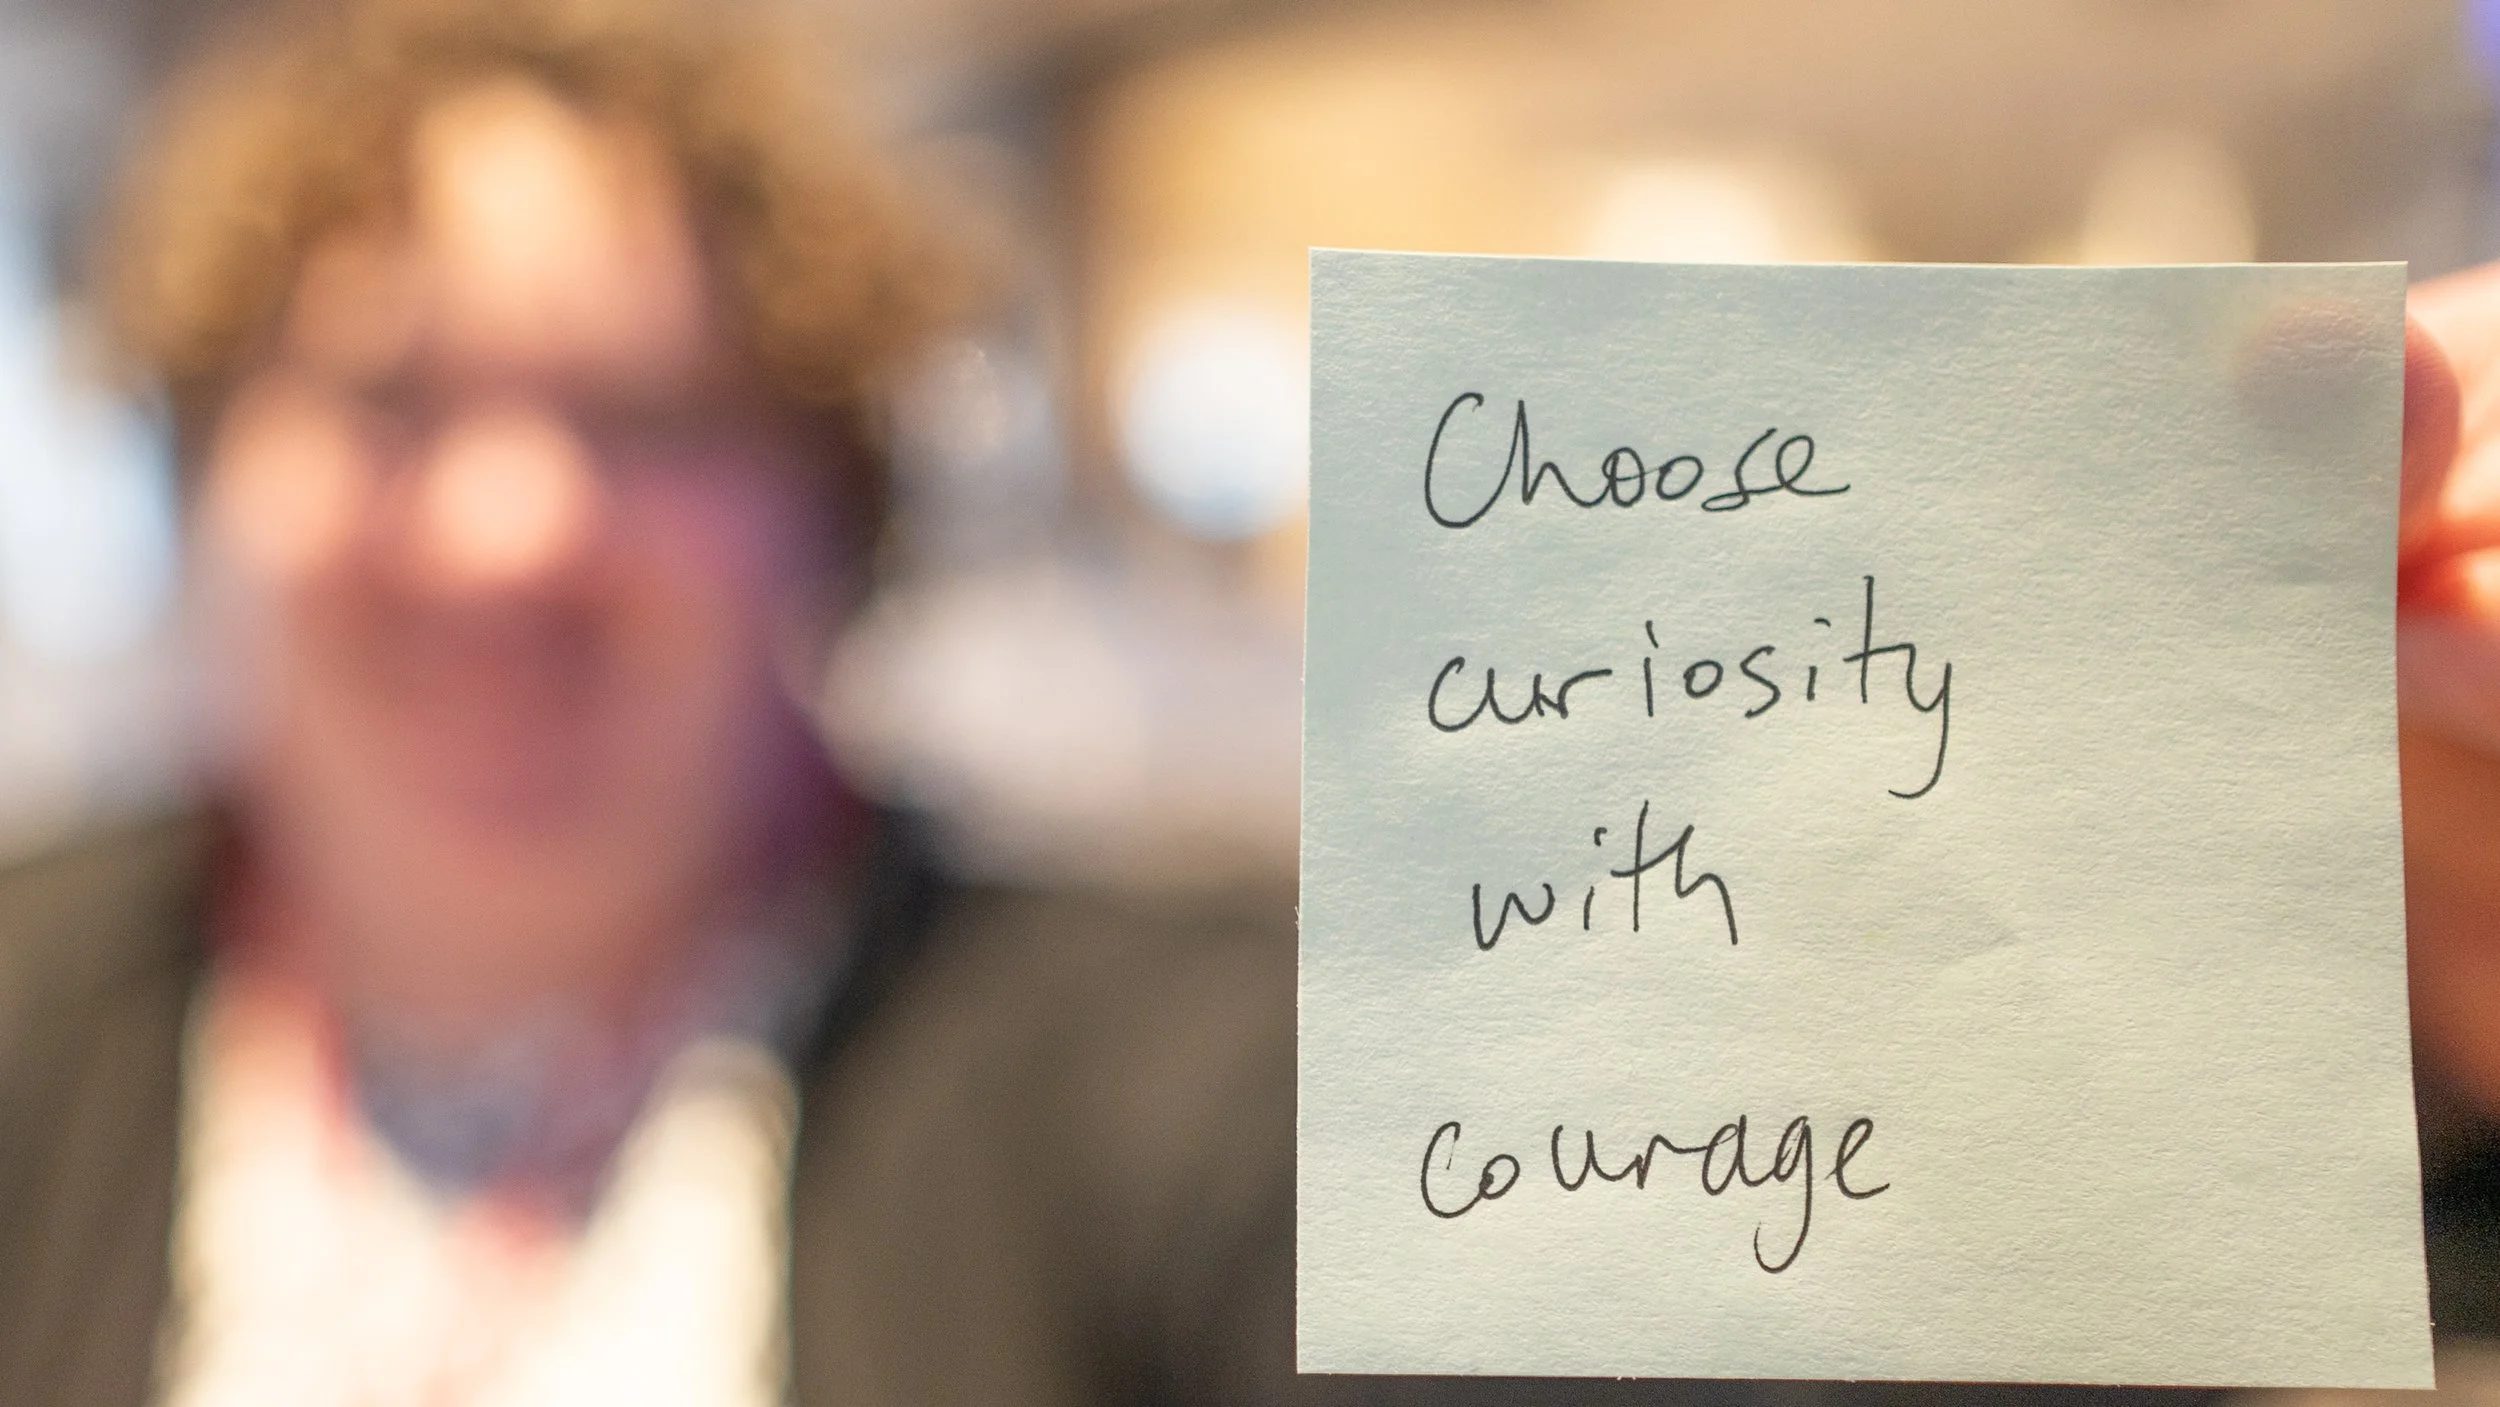 Choose
curiosity
with
courage